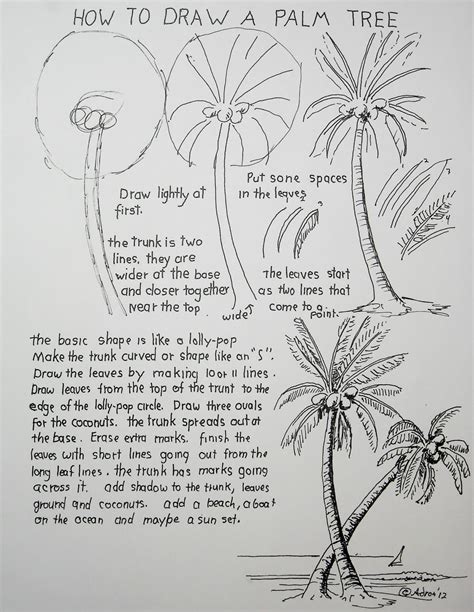 HOW TO DRAW A PALM TREE
Draw lightly at
first.
the trunk is two
lines, they are
wider at the base
and closer together
near the top.
Put some spaces
in the leaves
1
2
3
1
2
3
The leaves start
as two lines that
come to a point.
wide
the basic shape is like a lolly-pop
Make the trunk curved or shape like an "S".
Draw the leaves by making 10 or 11 lines.
Draw leaves from the top of the trunt to the
edge of the lolly-pop circle. Draw three ovals
for the coconuts. the trunk spreads out at
the base. Erase extra marks. finish the
leaves with short lines going out from the
long leaf lines. the trunk has marks going
across it. add shadow to the trunk, leaves
ground and coconuts. add a beach, a boat
on the ocean and maybe a sun set.
© Adron '12